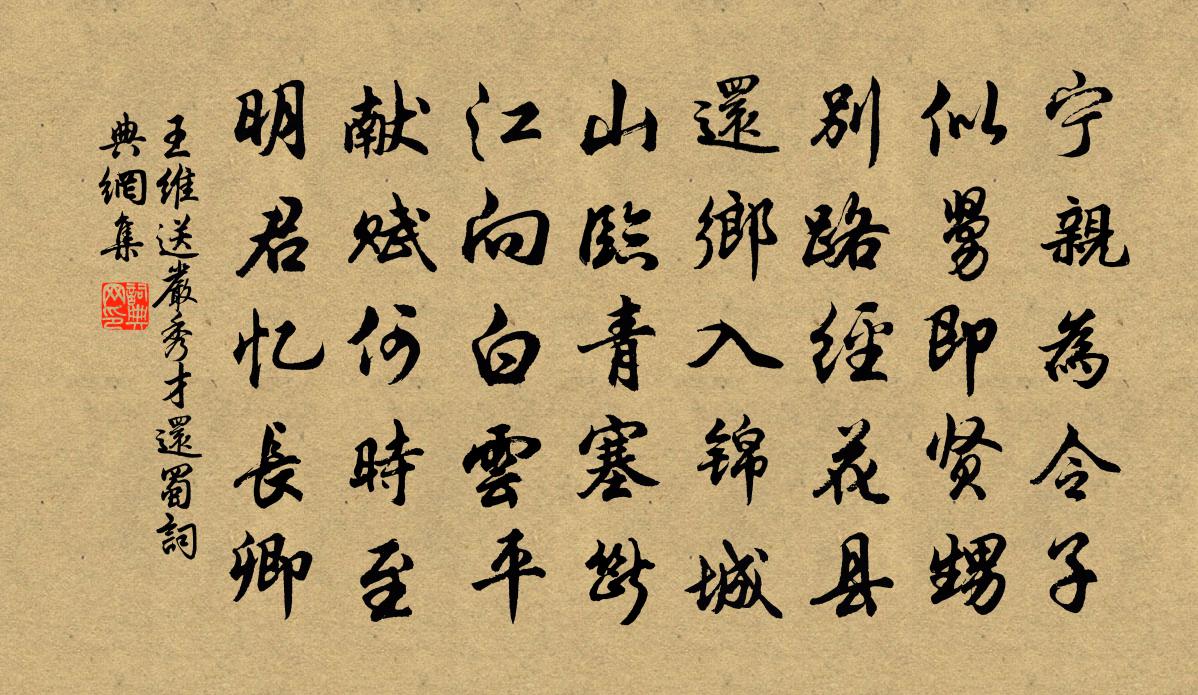 宁親為令子
似舅即贤甥
别路經花县
還鄉入锦城
山臨青塞断
江向白雲平
献赋何時至
明君忆長卿
王維送嚴秀才還蜀詞
典網集
詞典
网印